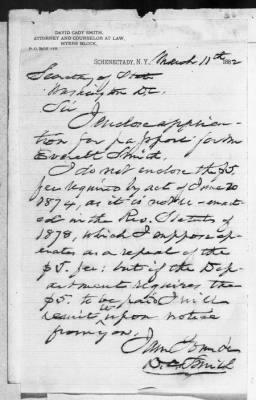 DAVID CADY SMITH,
ATTORNEY AND COUNSELOR AT LAW,
MYERS BLOCK,
P. O. BOX
SCHENECTADY, N.Y. March 11th 1882
Secretary of State
Washington D.C.
Sir I enclose applica-
tion for passport for Mr
Everett Smith.
I do not enclose the $5.
fee required by act of June 20
1874, as it is not re-enact-
ed in the Rev. Statutes of
1878, which I suppose op-
erates as a repeal of the
$5. fee: but if the Dep-
artment requires the
$5. to be paid I will
remit it upon notice
from you.
I am Yours &c
D. C. Smith